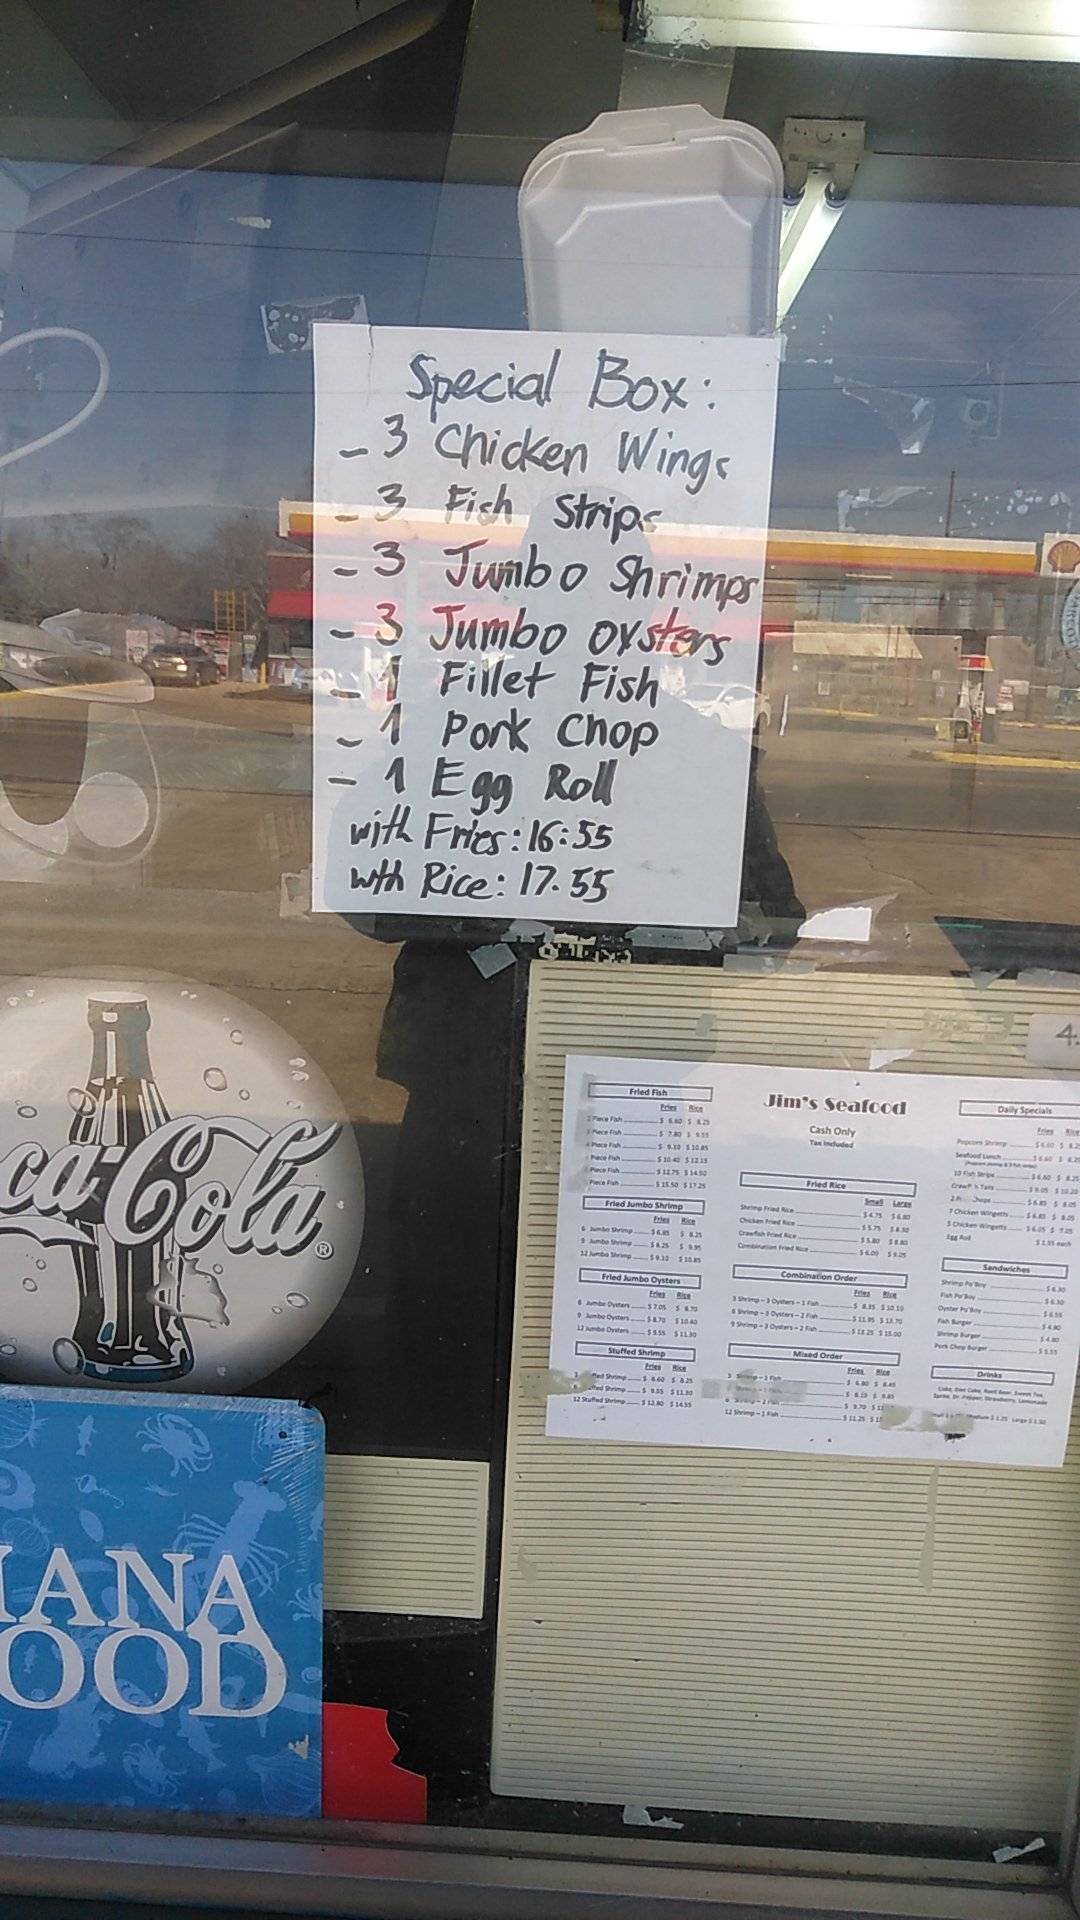 Special Box:
- 3 Chicken Wings
- 3 Fish Strips
- 3 Jumbo Shrimps
- 3 Jumbo oysters
- 1 Fillet Fish
- 1 Pork Chop
- 1 Egg Roll
with Fries: 16:55
wth Rice: 17.55
ca-Cola®
IANA
OOD
4.
Jim's Seafood
Cash Only
Tax Included
Fried Fish
Fries Rice
Piece Fish $ 6.60 $ 8.25
Piece Fish $ 7.80 $ 9.55
Piece Fish $ 9.10 $ 10.85
Piece Fish $ 10.40 $ 12.15
Piece Fish $ 12.75 $ 14.50
Piece Fish $ 15.50 $ 17.25
Fried Jumbo Shrimp
Fries Rice
6 Jumbo Shrimp $ 6.85 $ 8.25
9 Jumbo Shrimp $ 8.25 $ 9.95
12 Jumbo Shrimp $ 9.10 $ 10.85
Fried Jumbo Oysters
Fries Rice
6 Jumbo Oysters $ 7.05 $ 8.70
9 Jumbo Oysters $ 8.70 $ 10.40
12 Jumbo Oysters $ 9.55 $ 11.30
Stuffed Shrimp
Fries Rice
Stuffed Shrimp $ 6.60 $ 8.25
Stuffed Shrimp $ 9.55 $ 11.30
12 Stuffed Shrimp $ 12.80 $ 14.55
Fried Rice
Small Large
Shrimp Fried Rice $ 4.75 $ 6.80
Chicken Fried Rice $ 5.75 $ 8.30
Crawfish Fried Rice $ 5.80 $ 8.80
Combination Fried Rice $ 6.00 $ 9.05
Combination Order
Fries Rice
3 Shrimp – 3 Oysters – 1 Fish $ 8.35 $ 10.10
6 Shrimp – 3 Oysters – 2 Fish $ 11.95 $ 13.70
9 Shrimp – 3 Oysters – 2 Fish $ 13.25 $ 15.00
Mixed Order
Fries Rice
3 Shrimp – 1 Fish $ 6.80 $ 8.45
$ 8.10 $ 9.85
$ 9.70
12 Shrimp – 1 Fish $ 11.25
Daily Specials
Fries Rice
Popcorn Shrimp $ 6.60
Seafood Lunch $ 6.60
10 Fish Strips $ 6.60 $ 8.25
Tails $ 9.05 $ 10.20
Chops $ 6.85 $ 8.05
7 Chicken Wingetts $ 6.85 $ 8.05
5 Chicken Wingetts $ 6.05 $ 7.05
Egg Roll $ 1.55 each
Sandwiches
Shrimp Po'Boy $ 6.30
Fish Po'Boy $ 6.30
Oyster Po'Boy $ 6.55
Fish Burger $ 4.80
Shrimp Burger $ 4.80
Pork Chop Burger $ 5.55
Drinks
Coke, Diet Coke, Root Beer, Sweet Tea,
Sprite, Dr. Pepper, Strawberry, Lemonade
Medium $ 1.25 Large $ 1.50